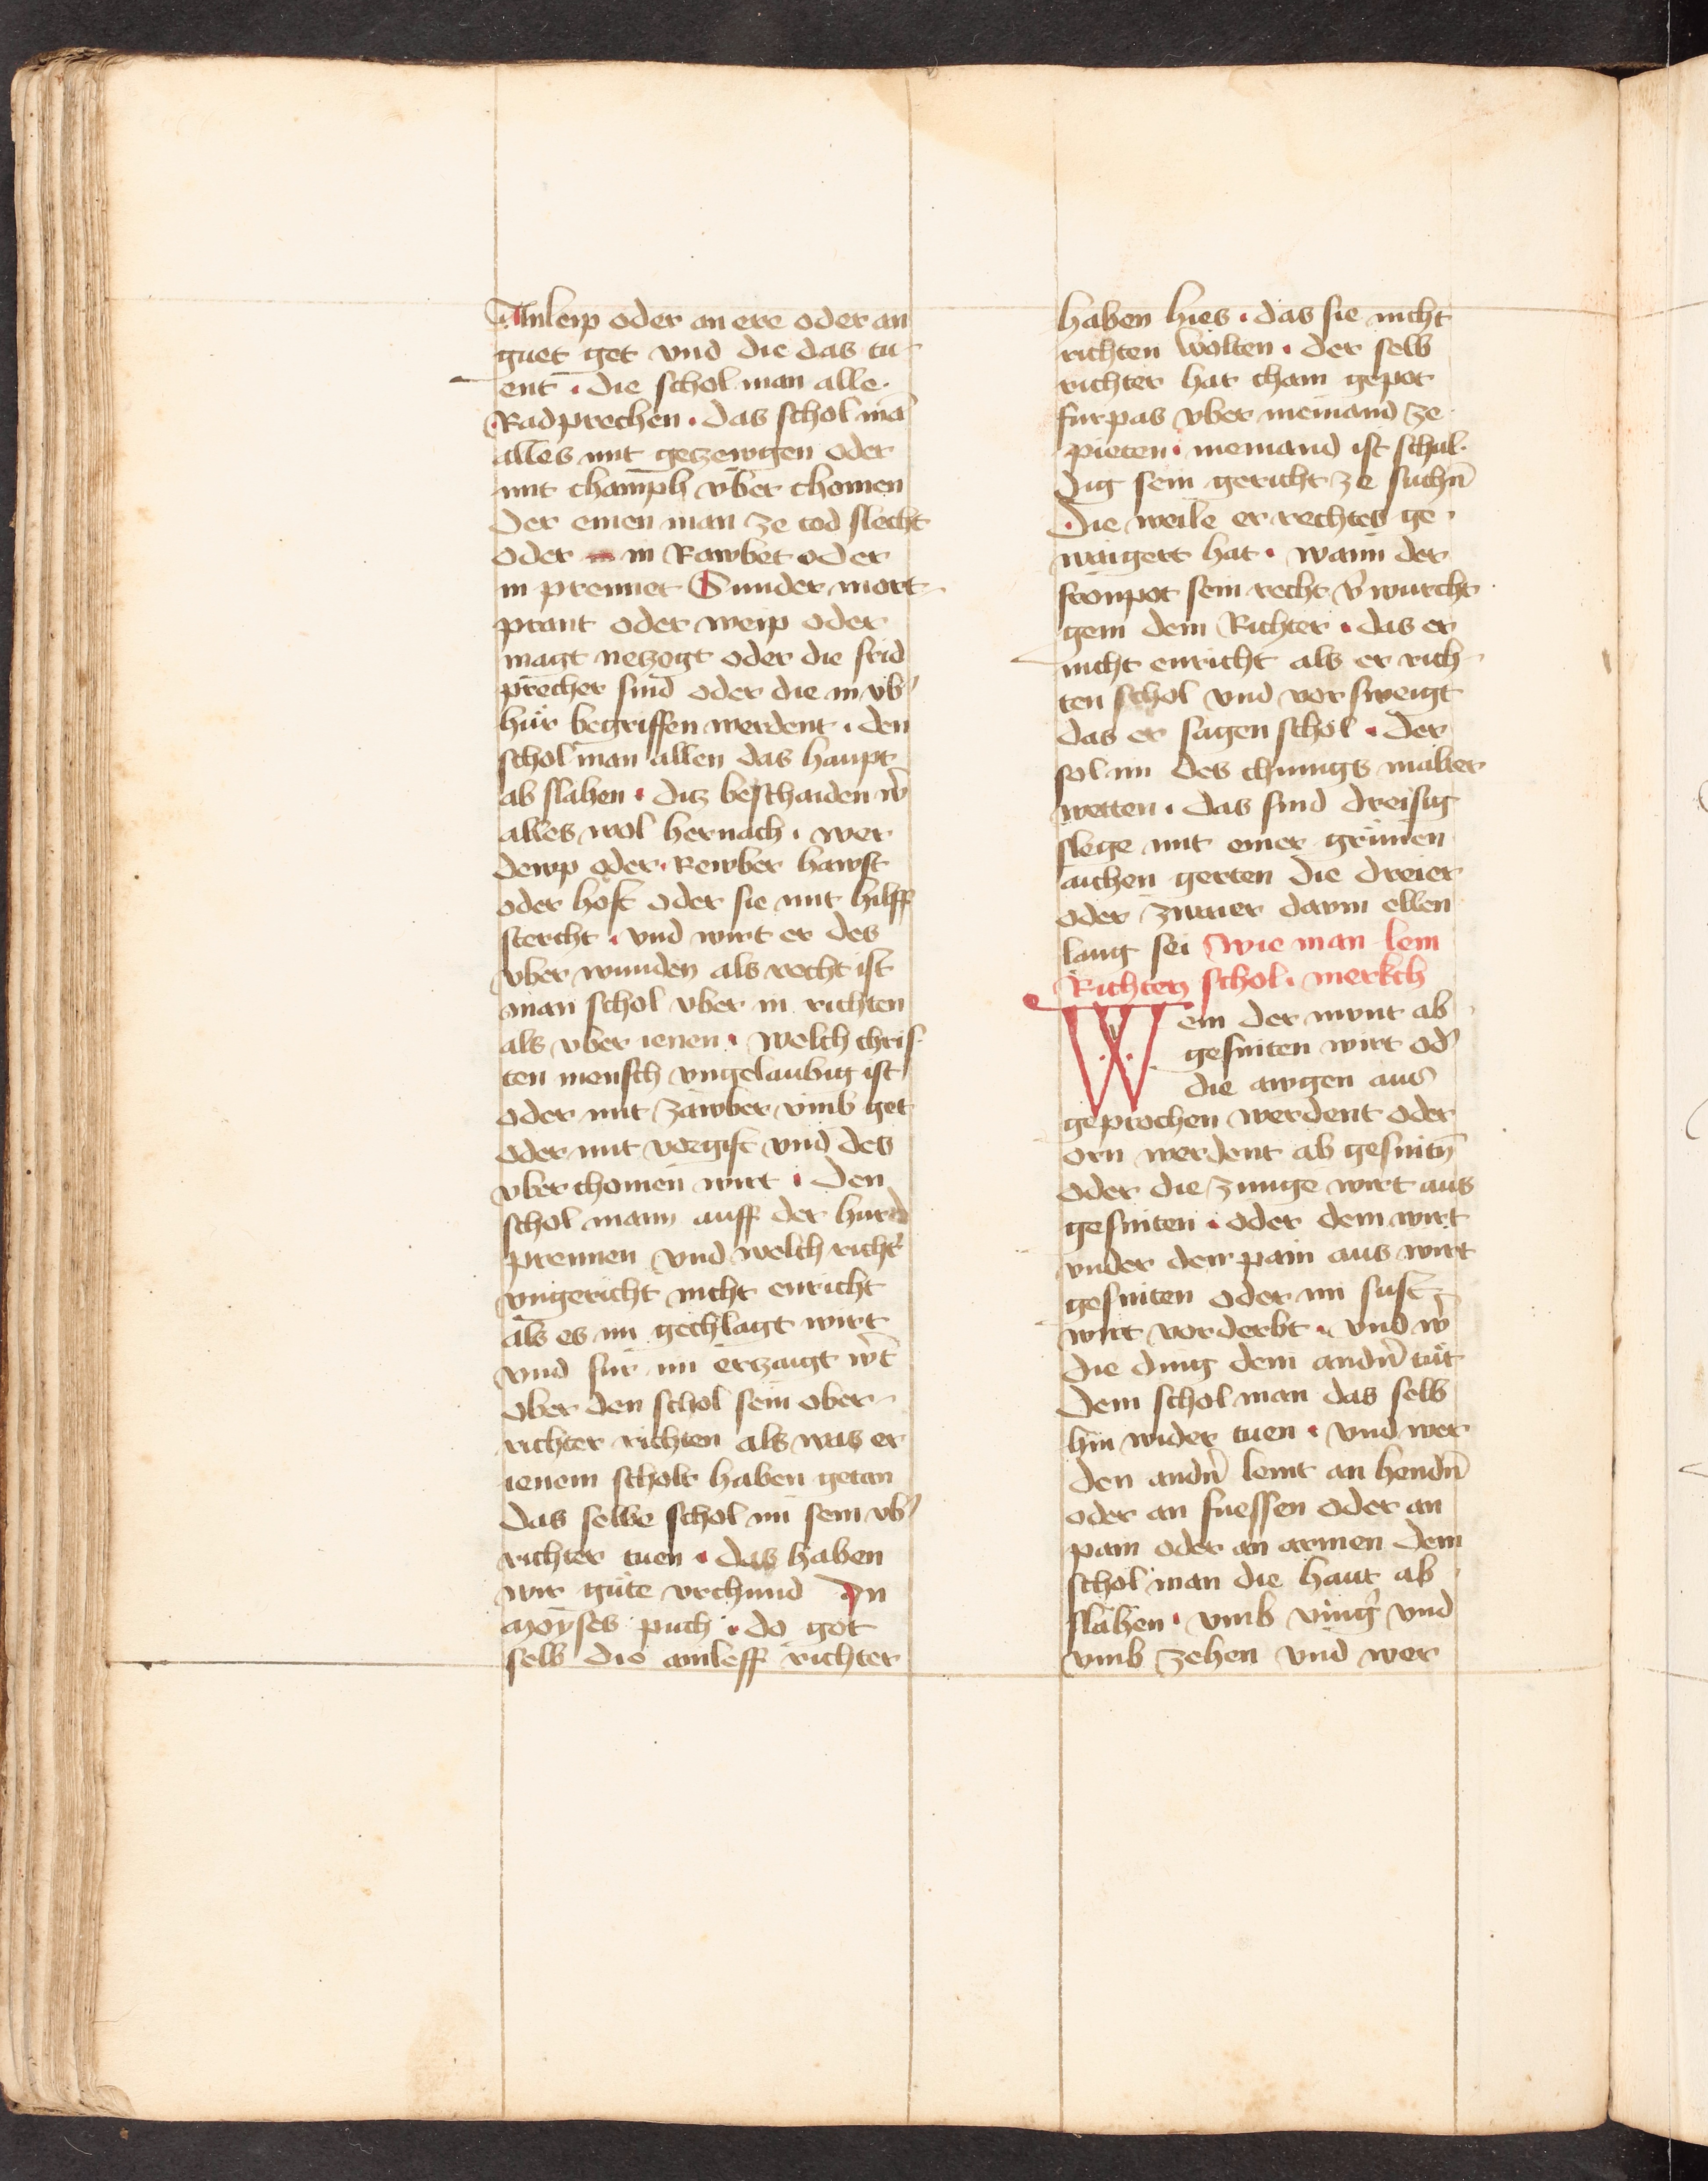 Anleip oder an ere oder an
guet get vnd die das tu-
ent · die schol man alle·
Radprechen · das schol mā
alles mit getzewgen oder
mit champh vber chomen
Der einen man ze tod slecht
oder in Rawbet oder
in prennet Sunder mort-
prant oder weip oder
magt netzogt oder die frid
precher sind oder die in vb᾽
hůr begriffen werdent · den
schol man allen das haupt
ab slahen · ditz beschaiden w᾽
alles wol hernach · wer
dewp oder Rewber hawst
oder hoft oder sie mit hilff
stercht · vnd wirt er des
vber wunden als recht ist
man schol vber in richten
als vber ienen · welch chris-
ten mensch vngelaubig ist
oder mit zawber vmb get
oder mit vorgift vnd des
vber chomen wirt · Den
schol mann auff der hurd
prennen vnd welch richt᾽
vngericht nicht enricht
als es im gechlagt wirt
vnd fur im ertzaigt w᾽t
ober den schol sein ober-
richter richten als was er
ienem scholt haben getan
das selbe schol im sein vb᾽
richter tuen · das haben
wir gůte vrchund In
Moyses puch · do got
selb die ainleff richter
haben hies · das sie nicht
richten wolten · der selb
richter hat cham gepot
furpas vber niemand ze
pieten · niemand ist schul-
dig sein gericht ze suchn̄
Die weile er rechtes ge-
waigert hat · wann der
fronpot sein recht v᾽wurcht
gein dem Richter · das er
nicht enricht als er rich-
ten schol vnd vorsweigt
das er sagen schol · Der
sol im des chunigs malter
wetten · das sind dreisig
slege mit einer grůnen
aichen gerten die dreier
oder zwaier dawm ellen
lang sei Wie man lem
Richten schol · merkch
Wem der munt ab
gesniten wirt od᾽
die awgen aus
geprochen werdent oder
orn werdent ab gesnitn̄
oder die zunge wirt aus
gesniten · oder dem wirt
vnder den pain aus wirt
gesniten oder im sust
wirt vorderbt · vnd w᾽
die ding dem andn᾽ tůt
Dem schol man das selb
hin wider tuen · vnd wer
den andn᾽ lemt an hendn̄
oder an fuessen oder an
pain oder an armen dem
schol man die hant ab
slahen · vmb ving᾽ vnd
vmb zehen vnd wer